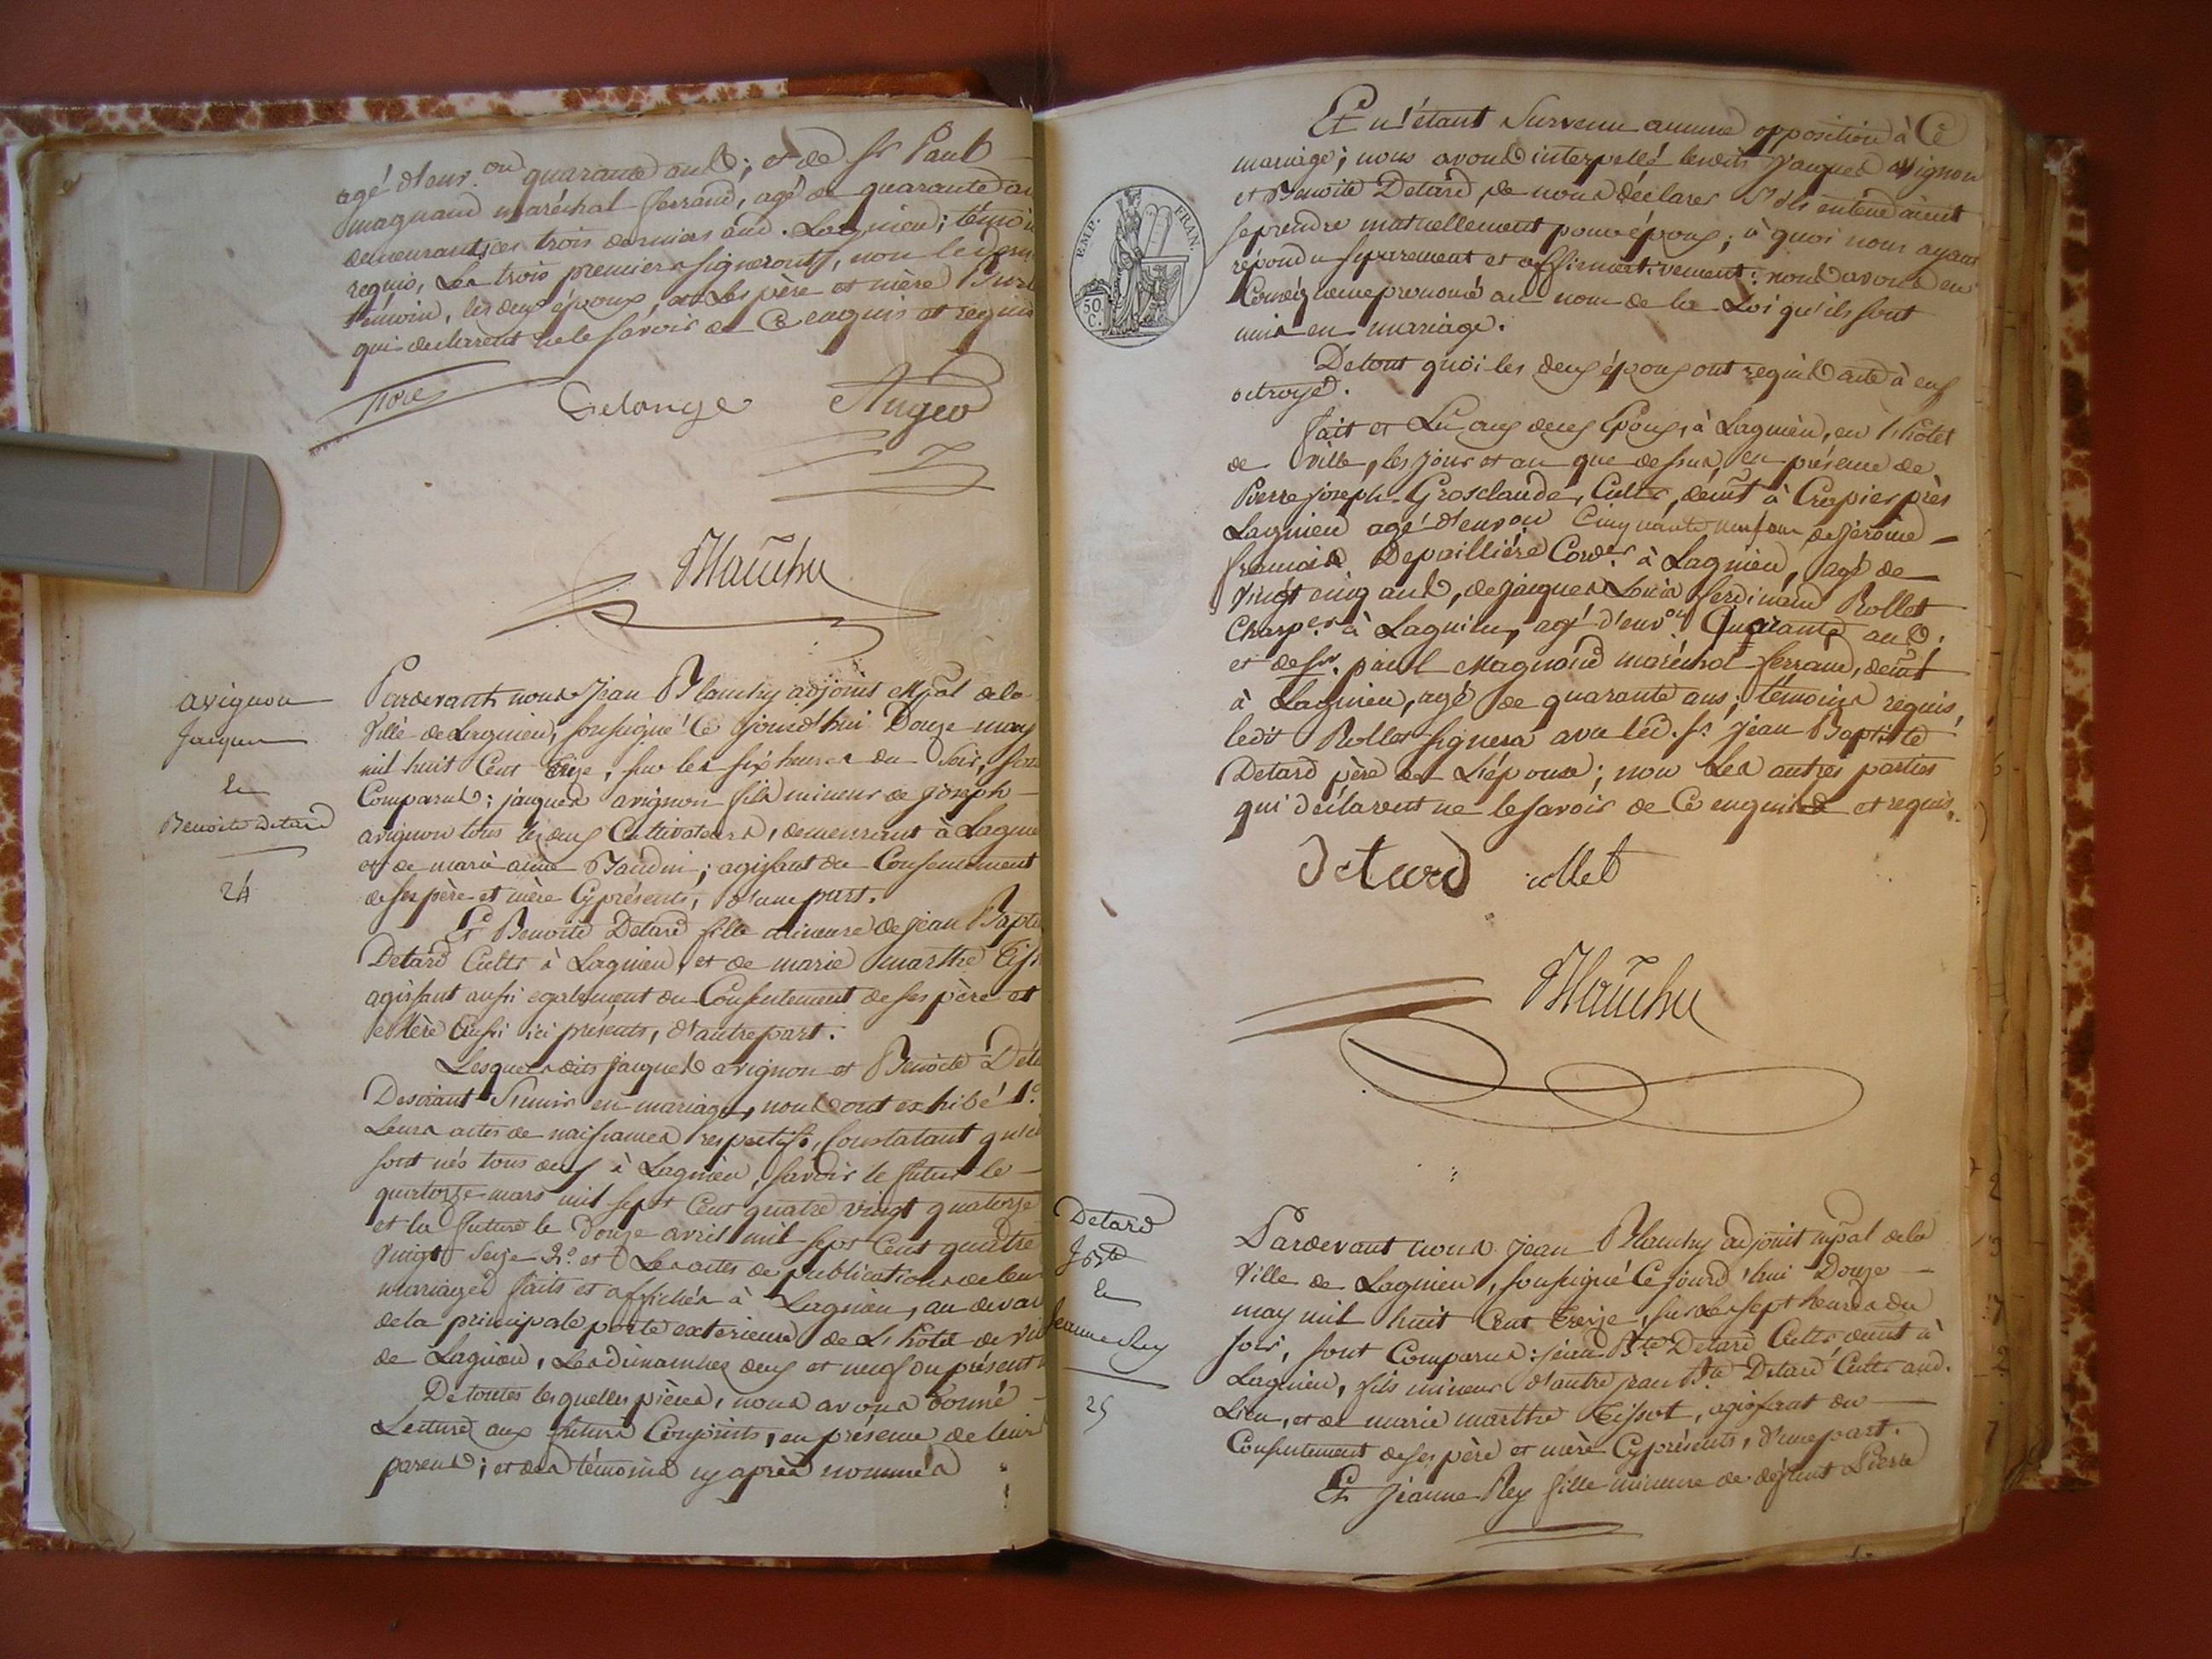 agé d'env.on quarante ans; et de Sr Paul
magnand maréchal ferrand, agé de quarante
demeurants ces trois derniers aud. Lagnieu; témoi
requis, Les trois premiers signeront, non le
témoin, les deux époux, et Les père et mère
qui declarent ne le savoir de Ce enquis et requis
Delange Auger
avignon
Jacques
&
Benoite Detard
24
Pardevant nous Jean Blanchy adjoint mpal de la
Ville de Lagnieu, soussigné Ce jourd'hui Douze may
mil huit Cent treize, sur les six heures du Soir, sont
Comparus: jacques avignon fils mineur de joseph
avignon tous les deux Cultivateurs, demeurant à Lagnieu
et de marie anne ; agissant du Consentement
de ses père et mère Cyprésents, d'une part.
Et Benoite Detard fille mineure de jean Bapte
Detard Cultr à Lagnieu, et de marie marthe Tiss
agissant aussi egalement du Consentement de ses père et
Mère Aussi ici présents, d'autre part.
Lesquels dits jacques avignon et Benoite Deta
Desirant S'unir en mariage, nous ont exhibé 1.°
Leurs actes de naissances respectifs, Constatant qu'ils
sont nés tous deux à Lagnieu, savoir le futur le
quatorze mars mil sept Cent quatre vingt quatorze
et la future le Douze avril mil sept Cent quatre
Vingt Seize 2.° et Les actes de publications de leur
mariage faits et affichés à Lagnieu, au devant
de la principale porte exterieure de L'hôtel de vil
de Lagnieu, Les dimanches deux et neuf du présent
De toutes lesquelles pièces, nous avons donné
Lecture aux futurs Conjoints, en présence de leurs
parens; et des témoins cy après nommés
EMP. FRAN.
50 C.
Et n'étant Survenu aucune opposition à Ce
mariage; nous avons interpellé lesdits Jacques Avignon
et Benoite Detard, de nous déclarer S'ils entendaient
se prendre mutuellement pour époux; à quoi nous ayant
répondu séparement et affirmativement: nous avons en
Conséquence prononcé au nom de la Loi qu'ils sont
unis en mariage.
De tout quoi les deux époux ont requis acte à eux
octroyé.
fait et Lu aux deux Epoux, à Lagnieu, en l'hôtel
de Ville, les jour et an que dessus, en présence de
Pierre joseph Grosclaude, Cultr, demt à Crepier près
Lagnieu agé d'environ Cinquante neuf ans de Jérome
francois Depaillière Cord.er à Lagnieu, agé de
Vingt cinq ans, de jacques Louis ferdinand Rollet
Charp.er à Lagnieu, agé d'env.on Quarante ans;
et de Sr. paul Magnand maréchal ferrand, demt
à Lagnieu, agé de quarante ans; témoins requis,
ledit Rollet signera avec led. Sr Jean Baptiste
Detard père de L'épouse; non Les autres parties
qui déclarent ne le savoir de Ce enquis et requis.
Detard ollet
Detard
J Bte
&
Jeanne Rey
25
Pardevant nous Jean Blanchy adjoint mpal de la
Ville de Lagnieu, soussigné Ce jourd'hui Douze
may mil huit Cent treize, sur Les sept heures du
soir, sont Comparus: jean Bte Detard Cultr, demt à
Lagnieu, fils mineur d'autre jean Bte Detard Cultr aud.
Lieu, et de marie marthe Tissot, agissant du
Consentement de ses père et mère Cyprésents, d'une part.
Et Jeanne Rey fille mineure de défunt Pierre